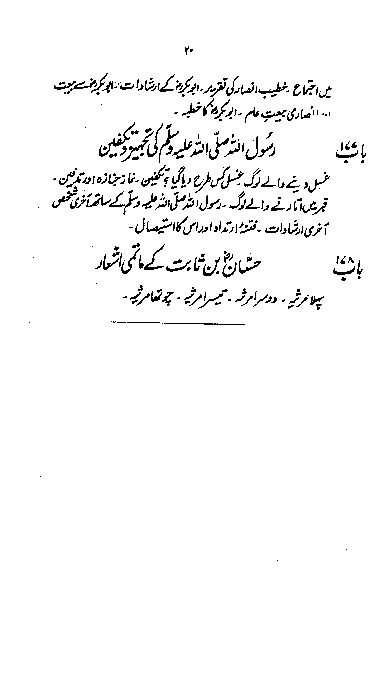 ۲۰
میں اجتماع۔ خطیب انصار کی تقریر۔ ابوبکرؓ کے ارشادات۔ ابوبکرؓ سے بیعت
انصار کی بیعتِ عام۔ ابوبکرؓ کا خطبہ۔
باب ۱۷۷ رسول اللہ صلی اللہ علیہ وسلم کی تجہیز و تکفین
غسل دینے والے لوگ۔ غسل کس طرح دیا گیا؟ تکفین۔ نماز جنازہ اور تدفین۔
قبر میں اتارنے والے لوگ۔ رسول اللہ صلی اللہ علیہ وسلم کے ساتھ آخری شخص
آخری ارشادات۔ فتنۂ ارتداد اور اس کا استیصال۔
باب ۱۷۸ حسّان بن ثابت کے ماتمی اشعار
پہلا مرثیہ۔ دوسرا مرثیہ۔ تیسرا مرثیہ۔ چوتھا مرثیہ۔